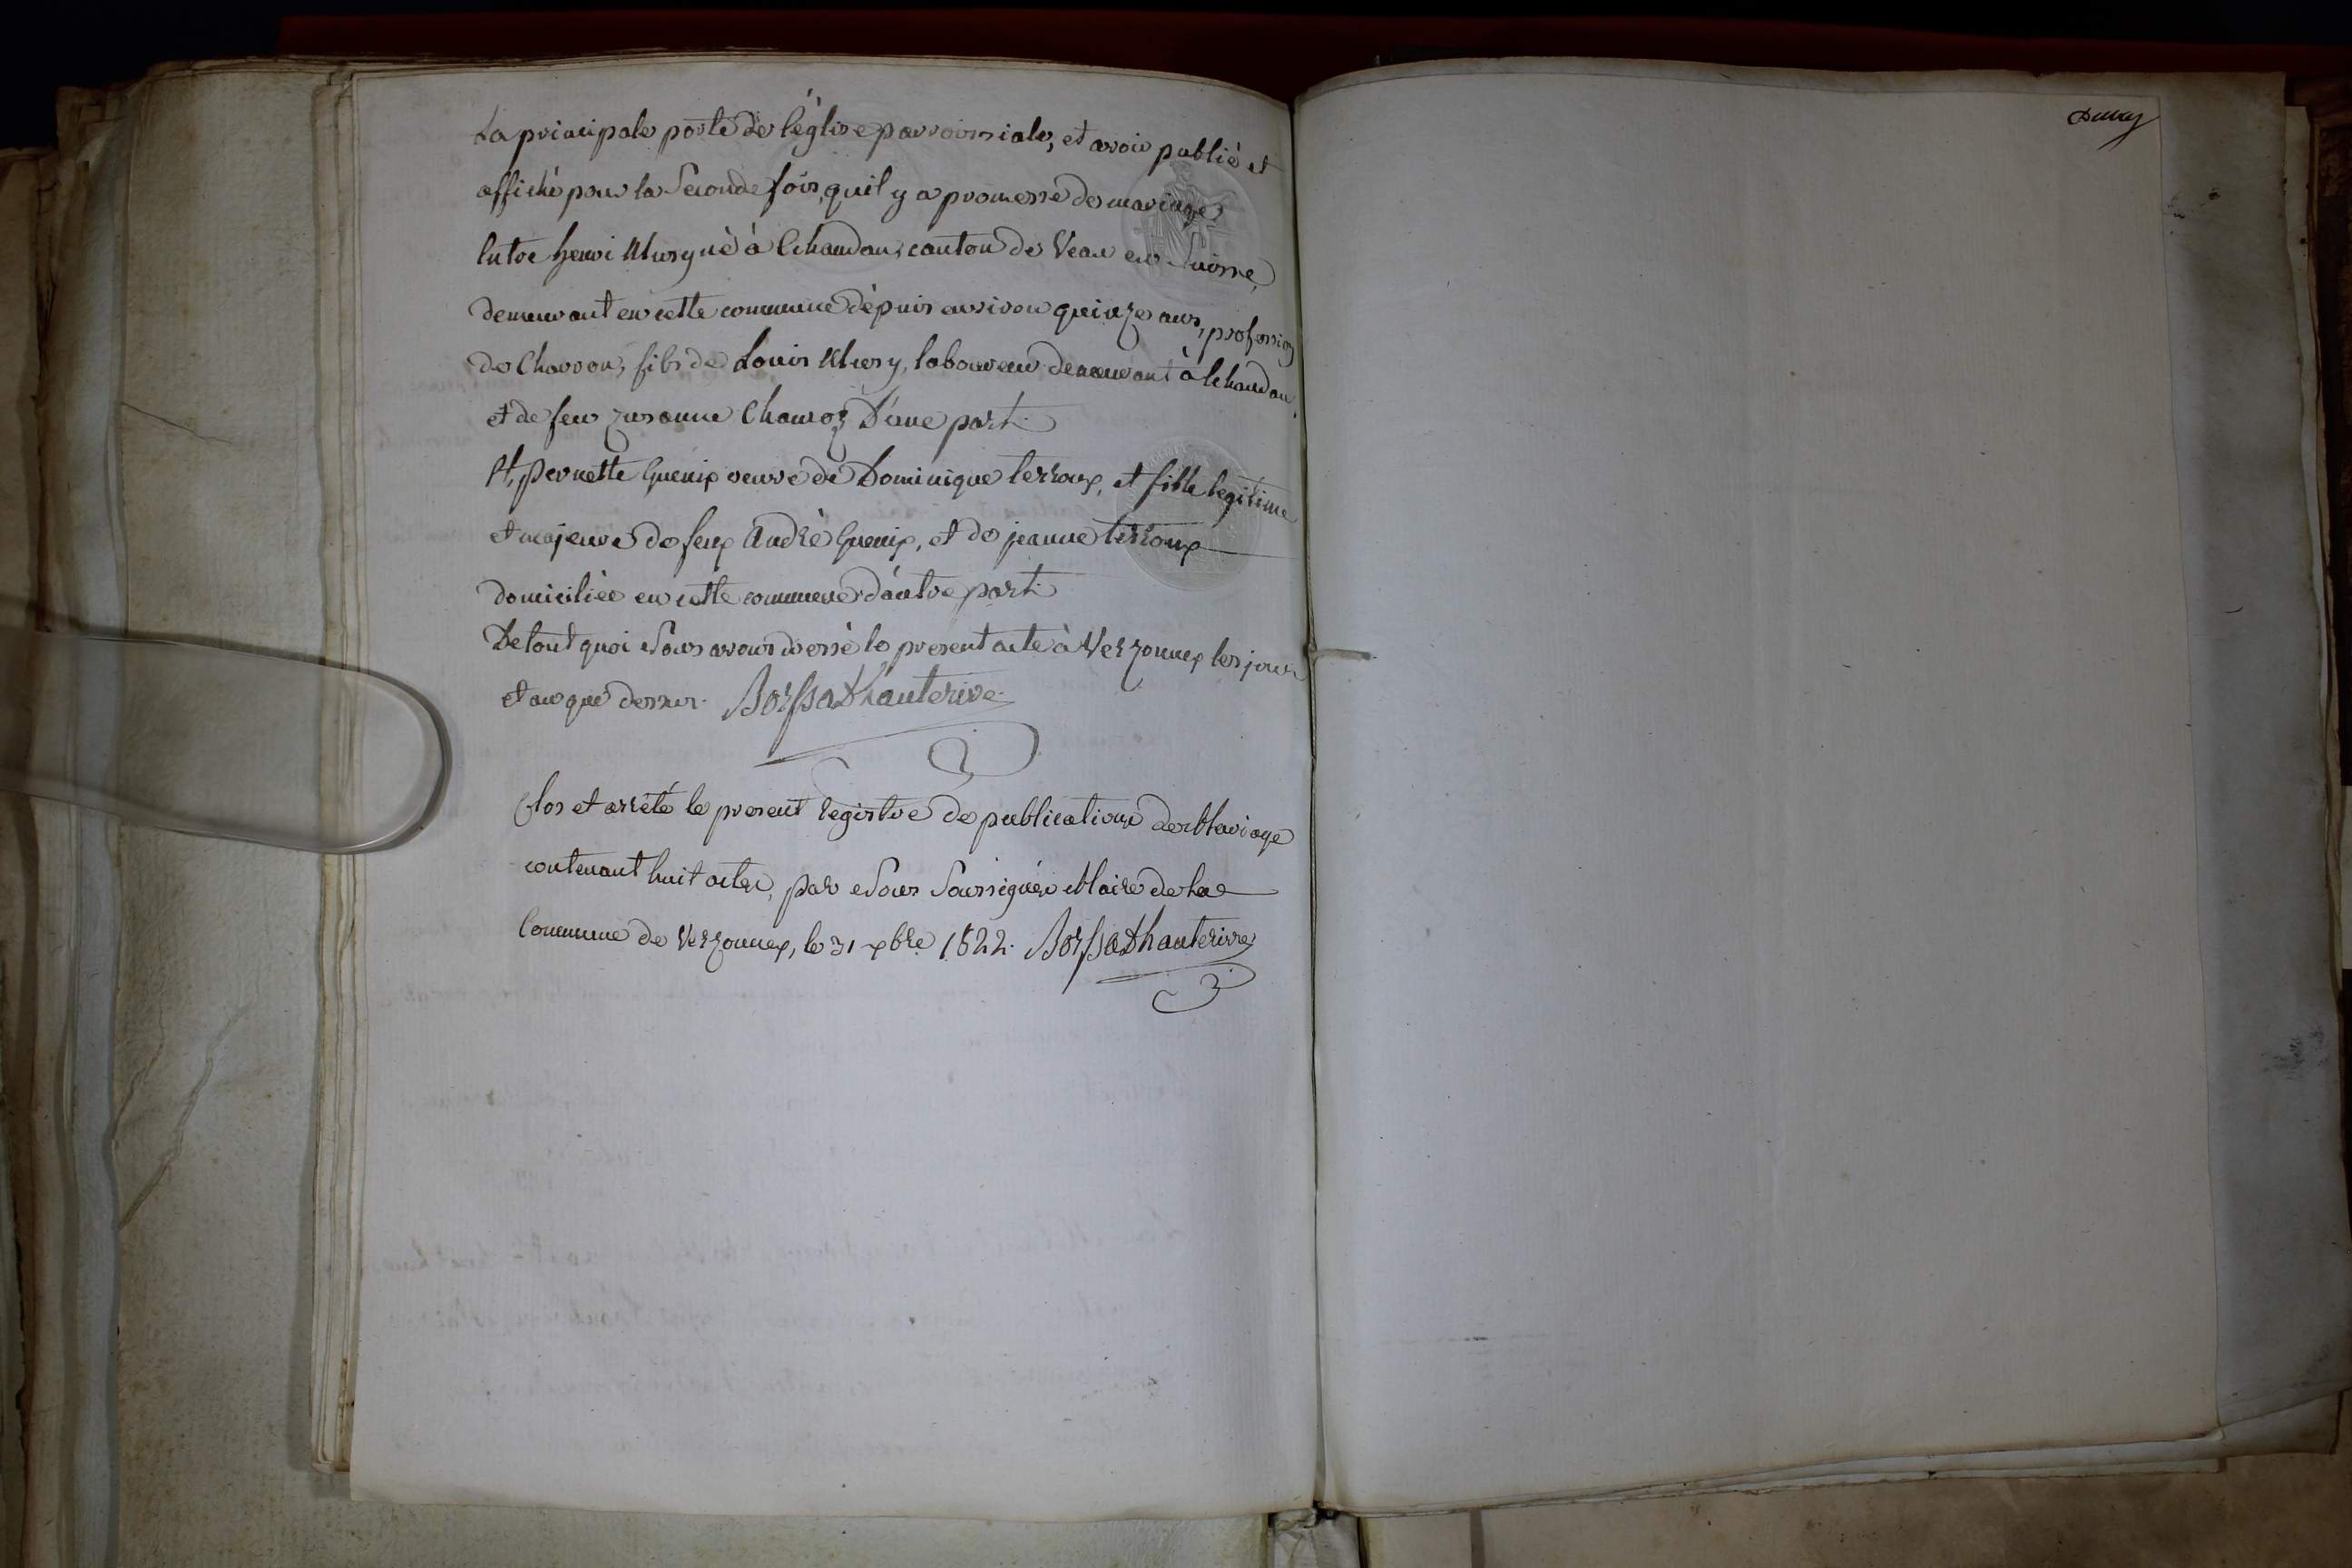 La principale porte de l'église parroissiale, et avoir publié et
affiché pour la Seconde fois, qu'il y a promesse de mariage
Entre henri Mury né à Echandan, canton de Veau en Suisse,
demeurant en cette commune dépuis environ quinze ans, profession
de Charron, fils de Louis Mury, laboureur demeurant à Echandan,
et de feu Zusanne Chamoz D'une part.
Et, pernette Guenix veuve de Dominique terroux, et fille legitime
et majeure de feux André Guenix, et de jeanne terroux
domiciliée en cette commune d'autre part.
De tout quoi Nous avons dressé le present acte à Verzonnex les jour
et an que dessus. Borssat Dhauterive
Clos et arrêté le present registre de publications de Mariage
contenant huit actes, par Nous Soussignés Maire de la
Commune de Verzonnex, le 31 xbre 1822. Borssat Dhauterive